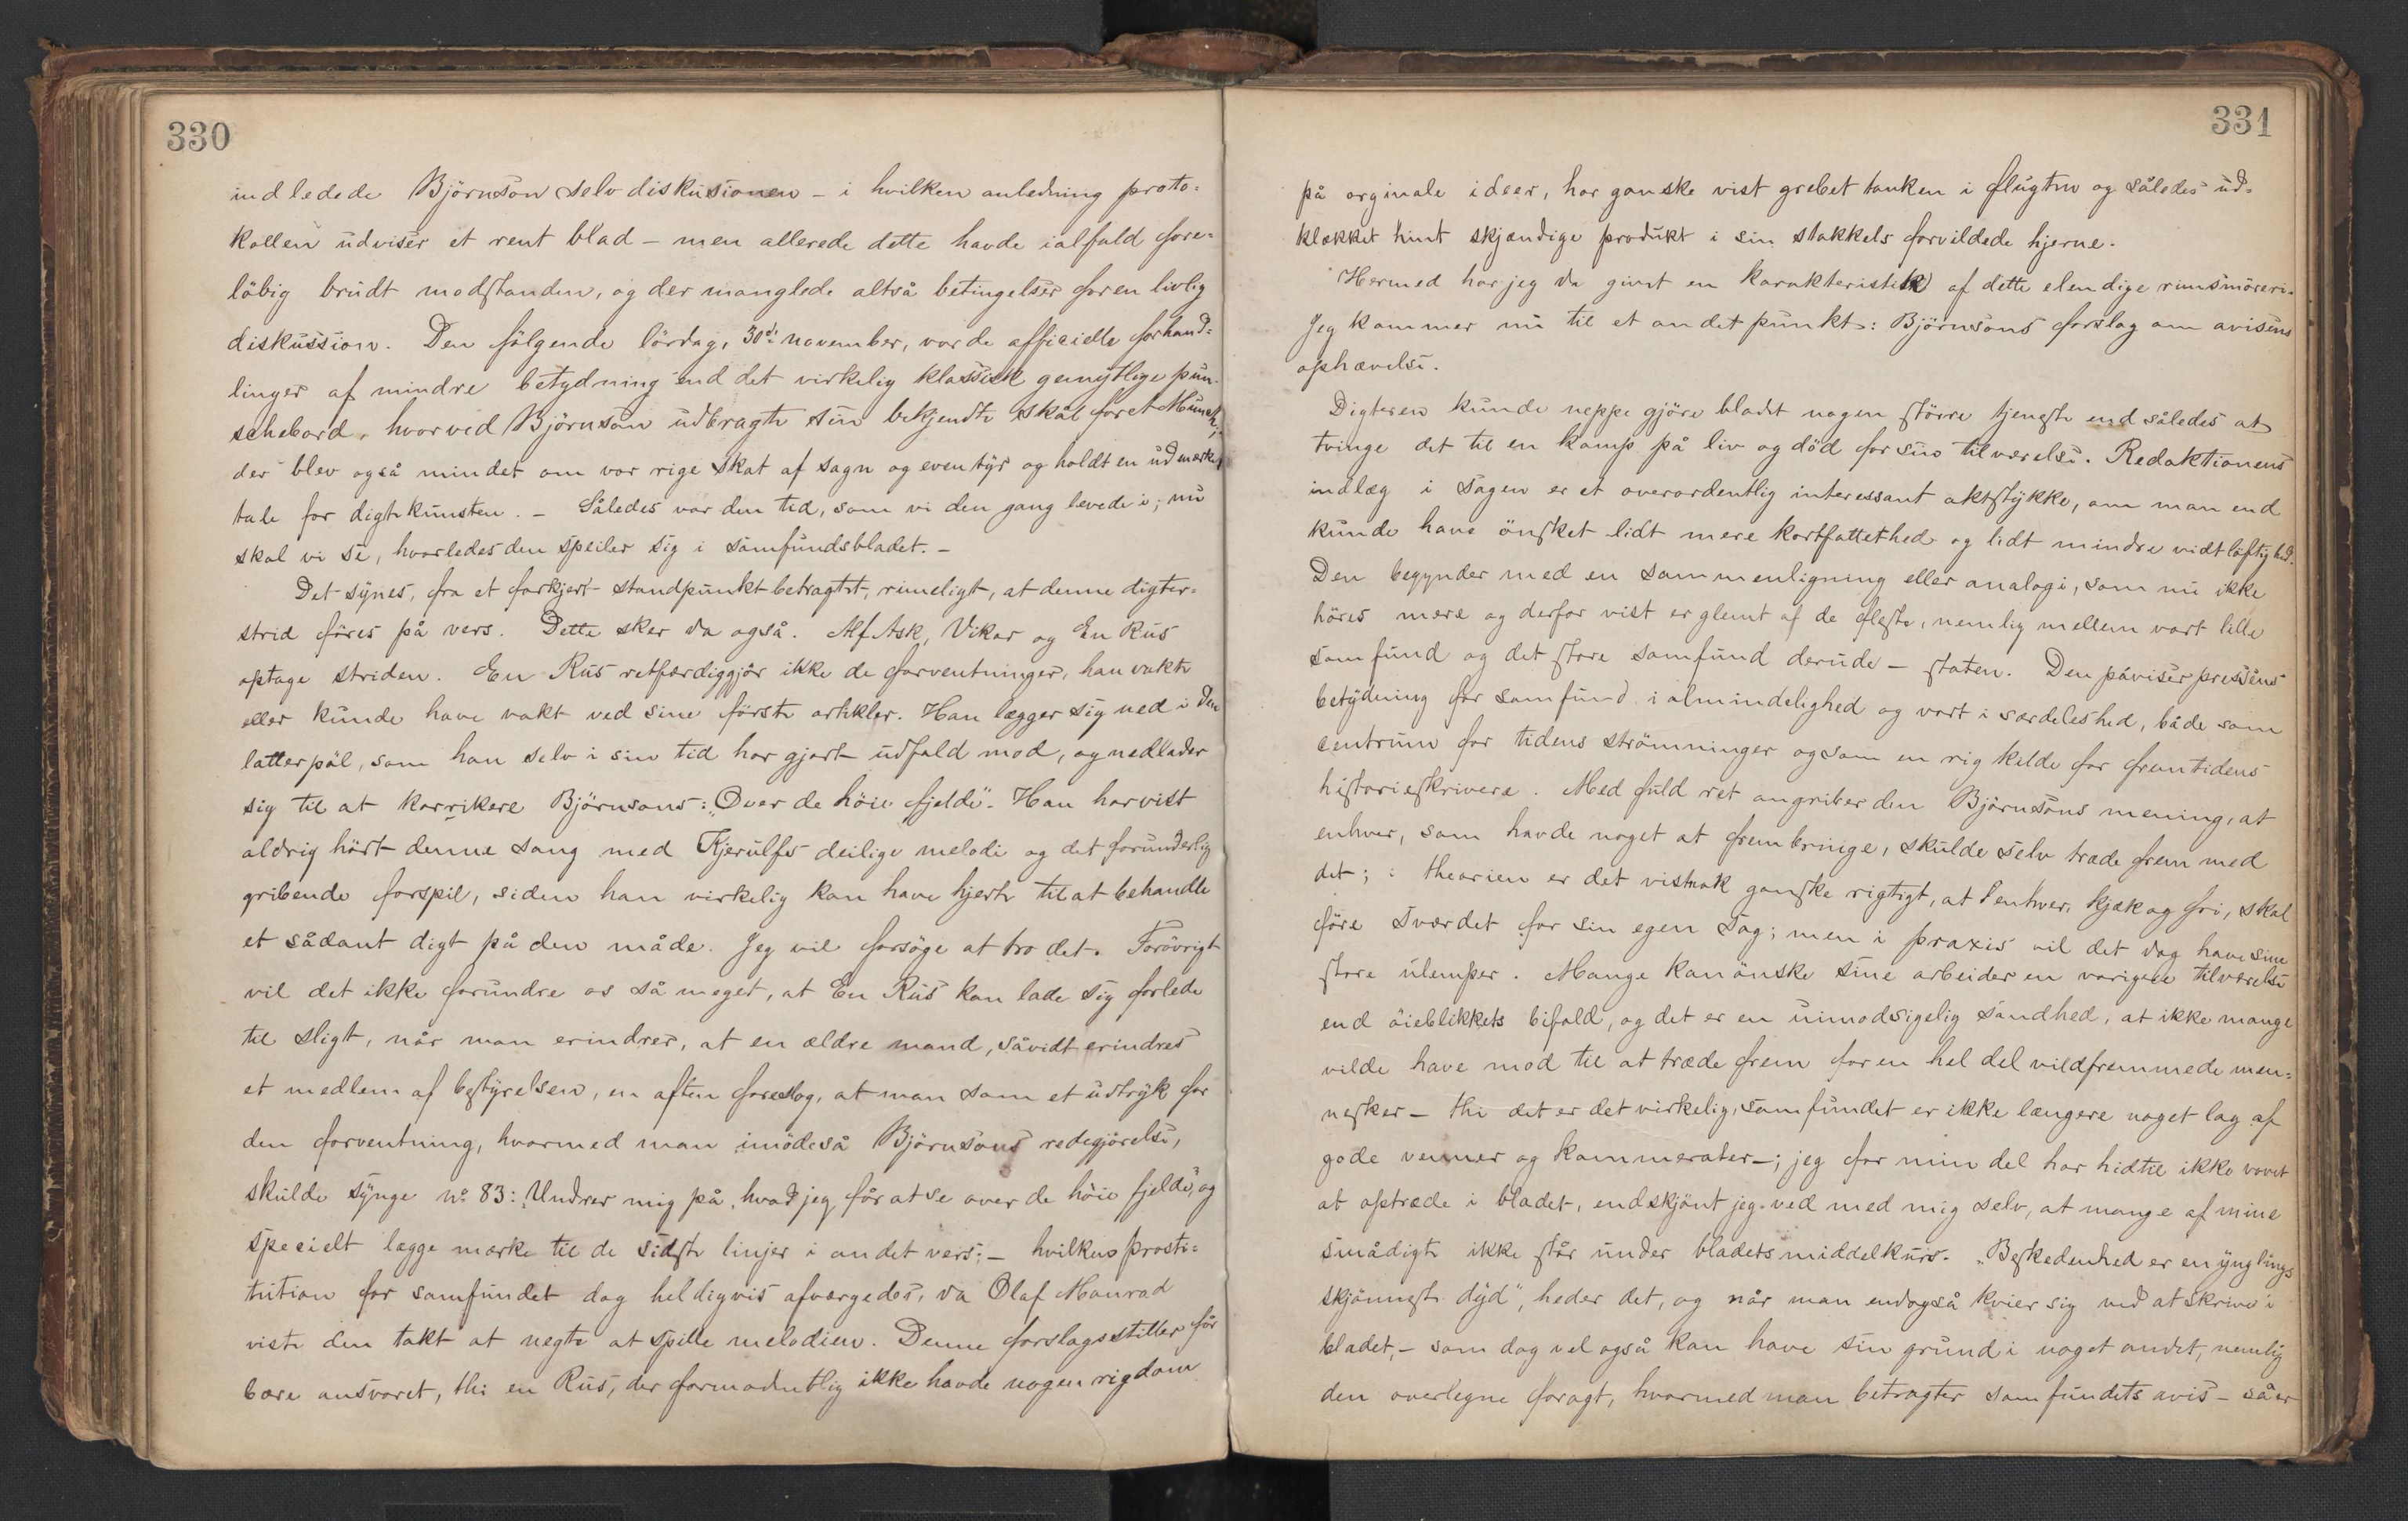 330
indledede Björnson selv diskusionen – i hvilken anledning proto=
kollen udviser et rent blad – men allerede dette havde ialfald fore=
löbig brudt modstanden, og der manglede altså betingelser for en livlig
diskussion. Den fölgende lördag, 30di november, var de officielle forhand=
linger af mindre betydning end det virkelig klassisk gemytlige pun=
schebord, hvorved Björnson udbragte sin bekjendte skål for et Munch;
der blev også mindet om vor rige skat af sagn og eventyr og holdt en udmærket
tale for digtekunsten. – Således var den tid, som vi den gang levede i; nu
skal vi se, hvorledes den speiler sig i samfundsbladet. –
Det synes, fra et forkjert standpunkt betragtet, rimeligt, at denne digter=
strid föres på vers. Dette sker da også. Alf Ask, Vikar og En Rus
optage striden. En Rus retfærdiggjör ikke de forventninger, han vakte
eller kunde have vakt ved sine förste artikler. Han lægger sig ned i den
latterpöl, som han selv i sin tid har gjort udfald mod, og nedlader
sig til at karrikere Björnsons: „Over de höie fjelde“. Han har vist
aldrig hört denne sang med Kjerulfs deilige melodi og det forunderlig
gribende forspil, siden han virkelig kan have hjerte til at behandle
et sådant digt på den måde. Jeg vil forsöge at tro det. Forövrigt
vil det ikke forundre os så meget, at En Rus kan lade sig forlede
til sligt, når man erindrer, at en ældre mand, såvidt erindres
et medlem af bestyrelsen, en aften foreslog, at man som et udtryk for
den forventning, hvormed man imödeså Björnsons redegjörelse,
skulde synge no. 83: „Undrer mig på, hvad jeg får at se over de höie fjelde“, og
specielt lægge mærke til de sidste linjer i andet vers; – hvilken prosti=
tution for samfundet dog heldigvis afværgedes, da Olaf Monrad
viste den takt at negte at spille melodien. Denne forslagsstiller får
bære ansvaret, thi en Rus, der formodentlig ikke havde nogen rigdom
331
på orginale ideer, har ganske vist grebet tanken i flugten og således ud=
klækket hint skjændige produkt i sin stakkels forvildede hjerne.
Hermed har jeg da givet en karakteristik af dette elendige rimsmöreri.
Jeg kommer nu til et andet punkt: Björnsons forslag om avisens
ophævelse.
Digteren kunde neppe gjöre bladet nogen större tjeneste end således at
tvinge det til en kamp på liv og död for sin tilværelse. Redaktionens
indlæg i sagen er et overordentlig interessant aktstykke, om man end
kunde have önsket lidt mere kortfattethed og lidt mindre vidtlöftighed.
Den begynder med en sammenligning eller analogi, som nu ikke
höres mere og derfor vist er glemt af de fleste, nemlig mellem vort lille
samfund og det store samfund derude – staten. Den påviser pressens
betydning for samfund i almindelighed og vort i særdeleshed, både som
centrum for tidens strömninger og som en rig kilde for fremtidens
historieskrivere. Med fuld ret angriber den Björnsons mening, at
enhver, som havde noget at frembringe, skulde selv træde frem med
det; i theorien er det vistnok ganske rigtigt, at enhver, kjæk og fri, skal
före sværdet for sin egen sag; men i praxis vil det dog have sine
store ulemper. Mange kan önske sine arbeider en varigere tilværelse
end öieblikkets bifald, og det er en uimodsigelig sandhed, at ikke mange
vilde have mod til at træde frem for en hel del vildfremmede men=
nesker – thi det er det virkelig, samfundet er ikke længere noget lag af
gode venner og kammerater –; jeg for min del har hidtil ikke vovet
at optræde i bladet, endskjönt jeg ved med mig selv, at mange af mine
smådigte ikke står under bladets middelkurs. „Beskedenhed er en ynglings
skjönneste dyd“, heder det, og når man endogså kvier sig ved at skrive i
bladet, – som dog vel også kan have sin grund i noget andet, nemlig
den overlegne foragt, hvormed man betragter samfundets avis – så er